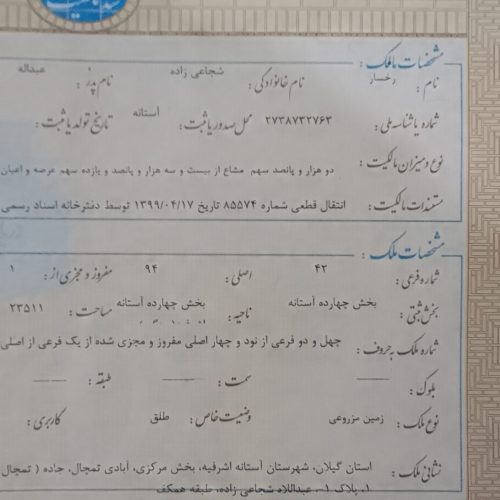 مشخصات مالک :
نام : رخسار نام خانوادگی : شجاعی زاده نام پدر : عبداله
شماره یا شناسه ملی : ۲۷۳۸۷۳۲۷۶۳ محل صدور یا ثبت : آستانه تاریخ تولد یا ثبت :
نوع و میزان مالکیت : دو هزار و پانصد سهم مشاع از بیست و سه هزار و پانصد و یازده سهم عرصه و اعیان
مستندات مالکیت : انتقال قطعی شماره ۸۵۵۷۴ تاریخ ۱۳۹۹/۰۴/۱۷ توسط دفترخانه اسناد رسمی
مشخصات ملک :
شماره فرعی : ۴۲ اصلی : ۹۴ مفروز و مجزی از : ۱
بخش ثبتی : بخش چهارده آستانه ناحیه : بخش چهارده آستانه مساحت : ۲۳۵۱۱
شماره ملک به حروف : چهل و دو فرعی از نود و چهار اصلی مفروز و مجزی شده از یک فرعی از اصلی
بلوک : سمت : طبقه :
نوع ملک : زمین مزروعی وضعیت خاص : طلق کاربری :
نشانی ملک : استان گیلان، شهرستان آستانه اشرفیه، بخش مرکزی، آبادی تمچال، جاده ( تمچال
۱، پلاک ۱-، عبداللاه شجاعی زاده، طبقه همکف